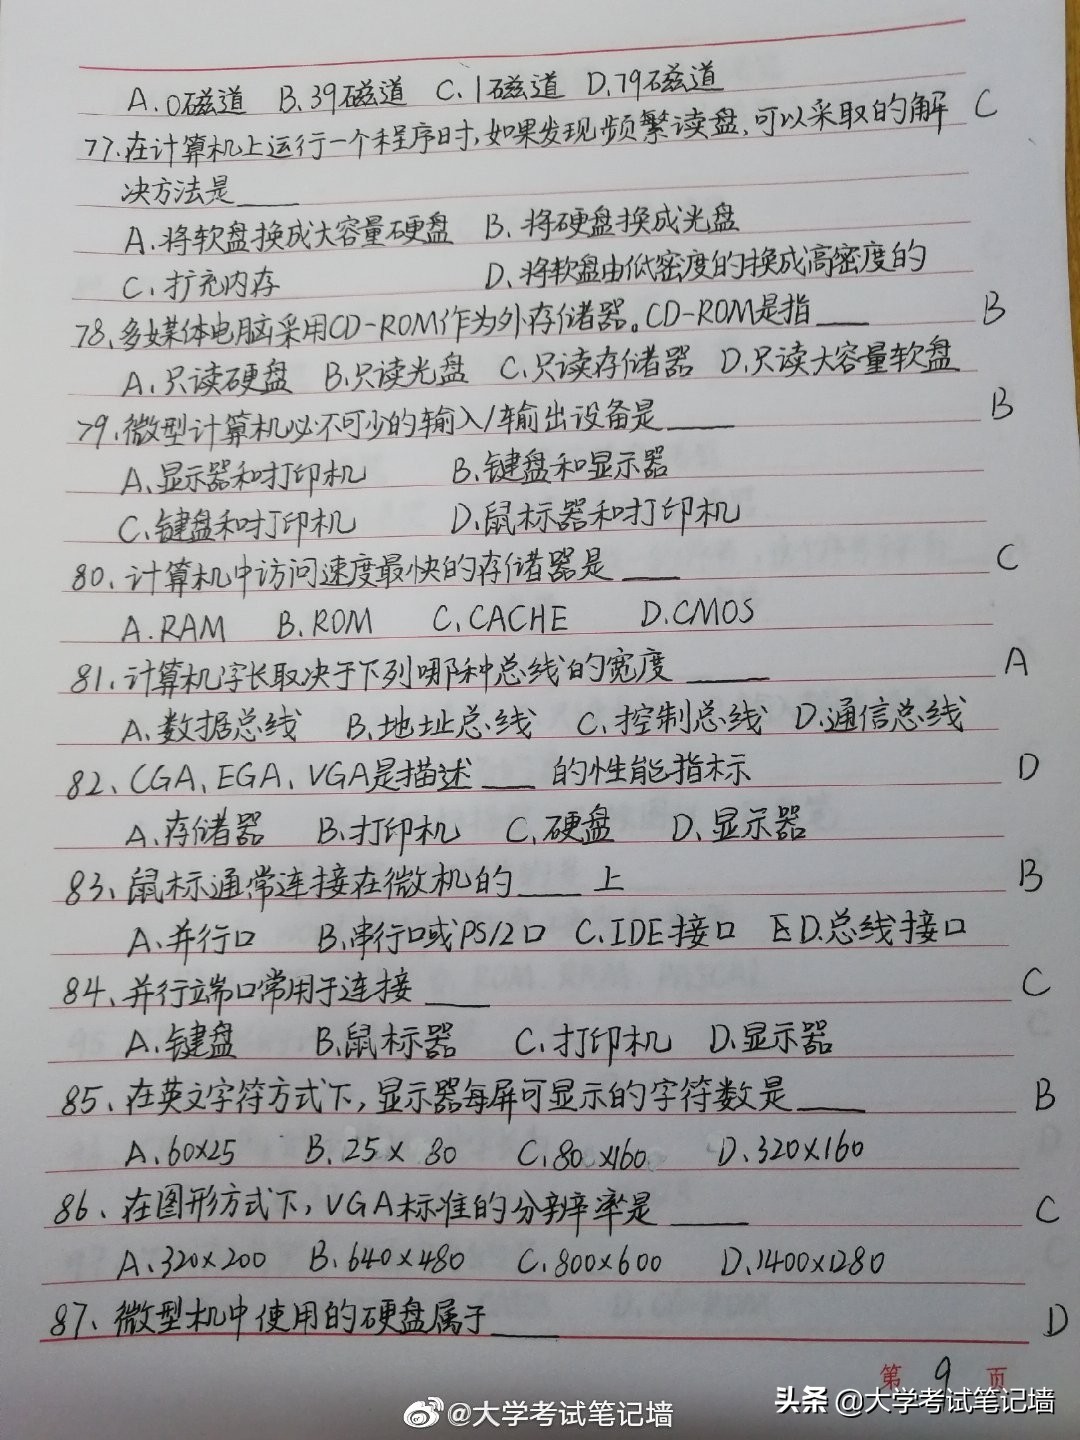 A.0磁道 B.39磁道 C.1磁道 D.79磁道
77.在计算机上运行一个程序时,如果发现频繁读盘,可以采取的解 C
决方法是____
A.将软盘换成大容量硬盘 B.将硬盘换成光盘
C.扩充内存 D.将软盘由低密度的换成高密度的
78.多媒体电脑采用CD-ROM作为外存储器。CD-ROM是指____ B
A.只读硬盘 B.只读光盘 C.只读存储器 D.只读大容量软盘
79.微型计算机必不可少的输入/输出设备是____ B
A.显示器和打印机 B.键盘和显示器
C.键盘和打印机 D.鼠标器和打印机
80.计算机中访问速度最快的存储器是____ C
A.RAM B.ROM C.CACHE D.CMOS
81.计算机字长取决于下列哪种总线的宽度____ A
A.数据总线 B.地址总线 C.控制总线 D.通信总线
82、CGA、EGA、VGA是描述____的性能指标 D
A.存储器 B.打印机 C.硬盘 D.显示器
83、鼠标通常连接在微机的____上 B
A.并行口 B.串行口或PS/2口 C.IDE接口 D.总线接口
84、并行端口常用于连接____ C
A.键盘 B.鼠标器 C.打印机 D.显示器
85、在英文字符方式下,显示器每屏可显示的字符数是____ B
A.60×25 B.25×80 C.80×160 D.320×160
86、在图形方式下,VGA标准的分辨率是____ C
A.320×200 B.640×480 C.800×600 D.1400×1280
87、微型机中使用的硬盘属于____ D
第 9 页
@大学考试笔记墙
头条 @大学考试笔记墙